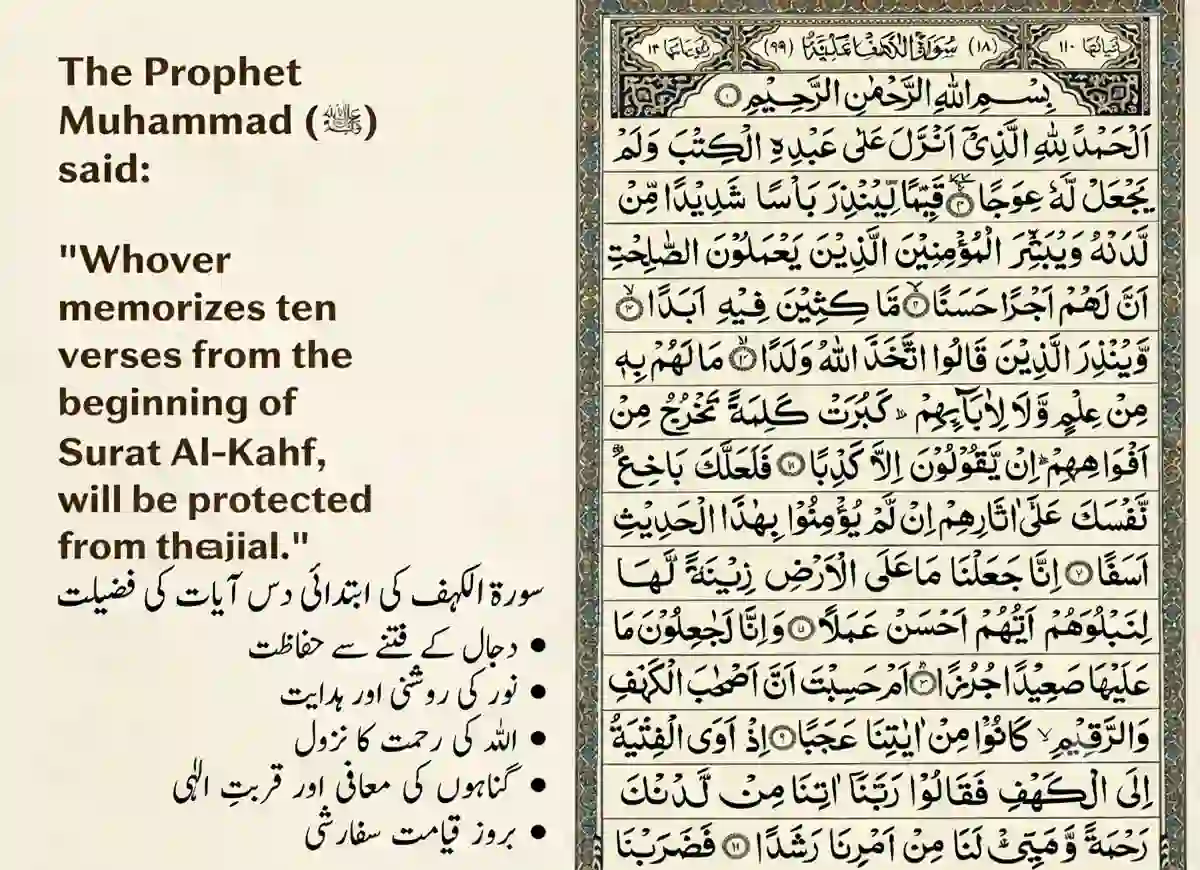 The Prophet
Muhammad (ﷺ)
said:
"Whover
memorizes ten
verses from the
beginning of
Surat Al-Kahf,
will be protected
from the
سورۃ الکہف کی ابتدائی دس آیات کی فضیلت
• دجال کے فتنے سے حفاظت
• نور کی روشنی اور ہدایت
• اللہ کی رحمت کا نزول
• گناہوں کی معافی اور قربتِ الٰہی
• بروز قیامت سفارشی
١١٠ (١٨) (٩٩) ١٢
بِسْمِ اللهِ الرَّحْمٰنِ الرَّحِيْمِ
اَلْحَمْدُ لِلّٰهِ الَّذِىْٓ اَنْزَلَ عَلٰى عَبْدِهِ الْكِتٰبَ وَلَمْ
يَجْعَلْ لَّهٗ عِوَجًا قَيِّمًا لِّيُنْذِرَ بَاْسًا شَدِيْدًا مِّنْ
لَّدَنْهُ وَيُبَشِّرَ الْمُؤْمِنِيْنَ الَّذِيْنَ يَعْمَلُوْنَ الصّٰلِحٰتِ
اَنَّ لَهُمْ اَجْرًا حَسَنًا مَّا كِثِيْنَ فِيْهِ اَبَدًا
وَّيُنْذِرَ الَّذِيْنَ قَالُوا اتَّخَذَ اللهُ وَلَدًا مَا لَهُمْ بِهٖ
مِنْ عِلْمٍ وَّلَا لِاٰبَآىِٕهِمْ كَبُرَتْ كَلِمَةً تَخْرُجُ مِنْ
اَفْوَاهِهِمْ اِنْ يَّقُوْلُوْنَ اِلَّا كَذِبًا فَلَعَلَّكَ بَاخِعٌ
نَّفْسَكَ عَلٰٓى اٰثَارِهِمْ اِنْ لَّمْ يُؤْمِنُوْا بِهٰذَا الْحَدِيْثِ
اَسَفًا اِنَّا جَعَلْنَا مَا عَلَى الْاَرْضِ زِيْنَةً لَّهَا
لِنَبْلُوَهُمْ اَيُّهُمْ اَحْسَنُ عَمَلًا وَاِنَّا لَجٰعِلُوْنَ مَا
عَلَيْهَا صَعِيْدًا جُرُزًا اَمْ حَسِبْتَ اَنَّ اَصْحٰبَ الْكَهْفِ
وَالرَّقِيْمِ كَانُوْا مِنْ اٰيٰتِنَا عَجَبًا اِذْ اَوَى الْفِتْيَةُ
اِلَى الْكَهْفِ فَقَالُوْا رَبَّنَآ اٰتِنَا مِنْ لَّدُنْكَ
رَحْمَةً لَنَا مِنْ اَمْرِنَا رَشَدًا فَضَرَبْنَا